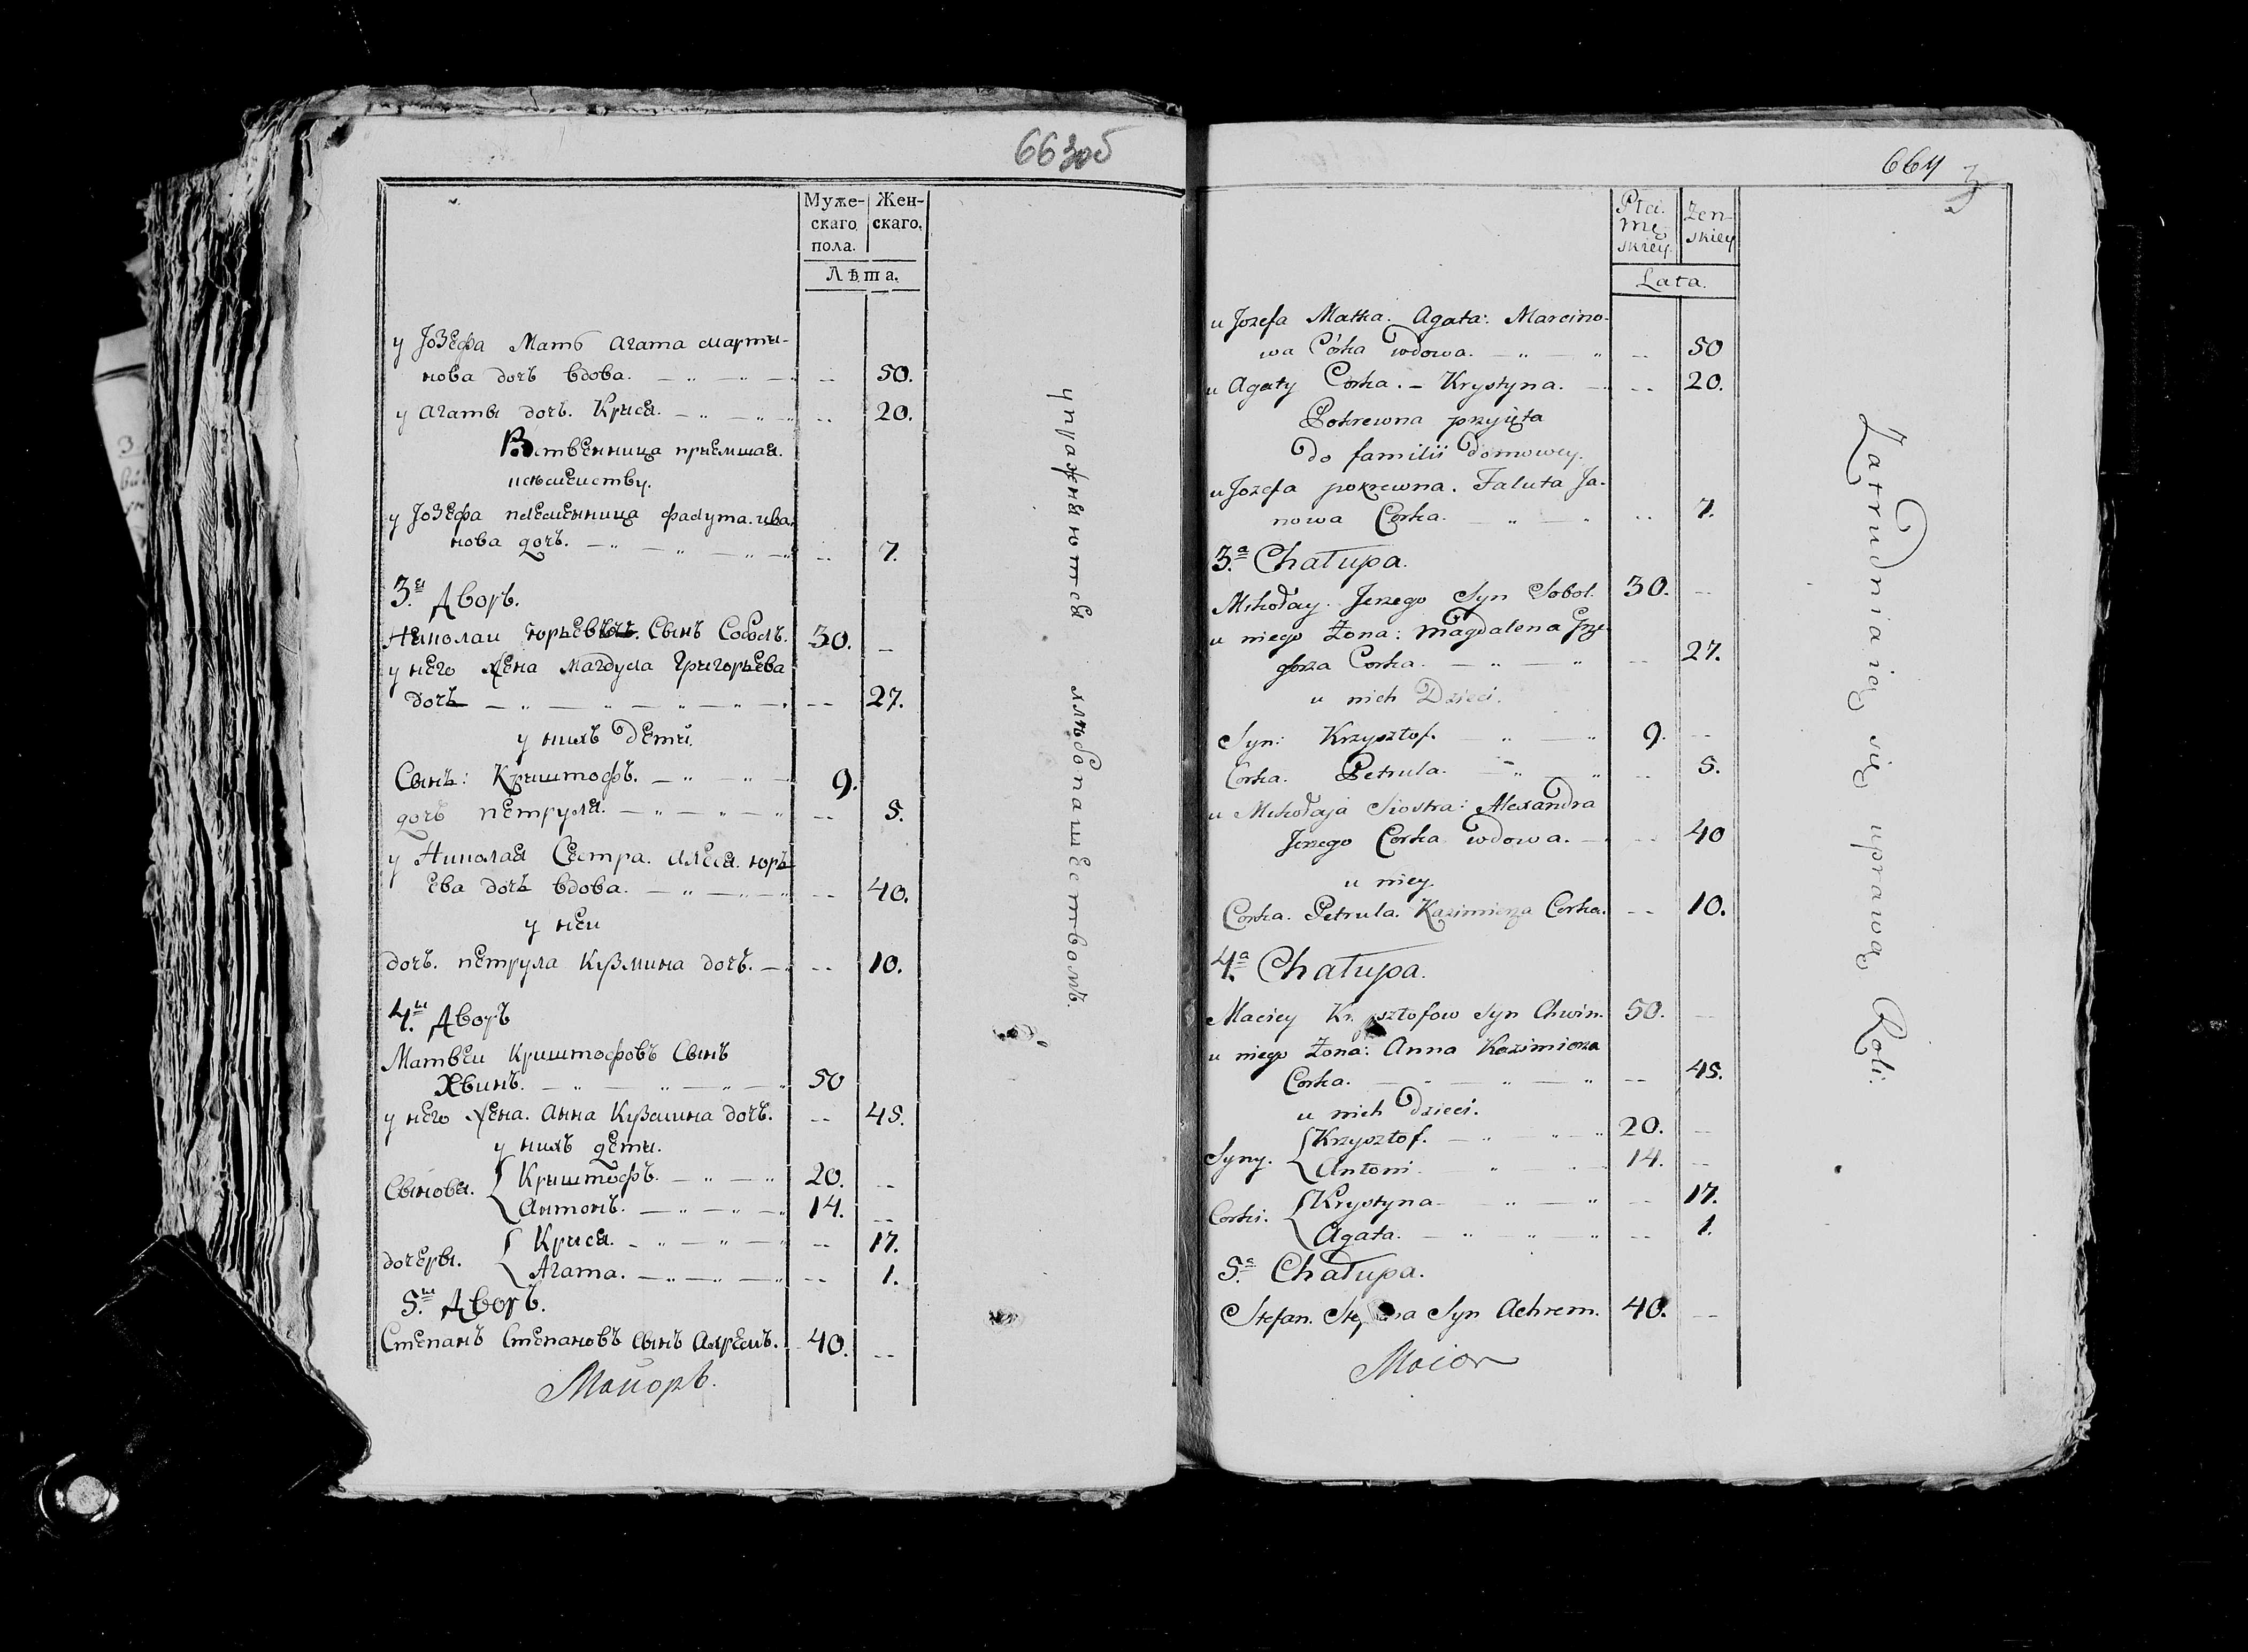 663об
Муже-
скаго
пола.
Жен-
скаго.
Лѣта.
у Јозефа Мать Агата марти-
нова дочь вдова. 50.
у Агаты дочь. Крися. 20.
приемшая.
у Јозефа племенница фалута. ива-
нова дочь. 7.
3.й Дворъ.
Николаи Юрьевъ Сынъ Соболь. 30.
у него Жена Магдула Григорьева
дочь 27.
у нихъ дети.
Сынъ: Криштофъ. 9.
дочь петруля. 5.
у Николая Сестра. Алеся. юрь
ева дочь вдова. 40.
у неи
дочь. петрула Кузмина дочь. 10.
4.й Дворъ
Матвеи Криштофовъ Сынъ
Хвинъ. 50
у него Жена. Анна Кузмина дочь. 45.
у нихъ дети.
Сыновья. Криштофъ. 20.
Антонъ. 14.
дочеры. Крися. 17.
Агата. 1.
5.й Дворъ.
Степанъ Степановъ сынъ Ахремъ. 40.
Маиоръ.
упражняются хлѣбопашествомъ.
664
3
Płci.
Mę-
skiey.
Żen-
skiey
Lata.
u Jozefa Matka. Agata: Marcino-
wa Córka wdowa. 50
u Agaty Corka. Krystyna. 20.
Pokrewna przyięta
Do familii Domowey.
u Jozefa pokrewna. Faluta Ja-
nowa Corka. 7.
3.a Chałupa.
Mikołay. Jerzego Syn Sobol. 30.
u niego Żona: Magdalena Grze-
gorza Corka. 27.
u nich Dzieci.
Syn: Krzysztof. 9.
Corka. Petrula. 5.
u Mikołaja Siostra: Alexandra
Jerzego Corka wdowa. 40
u niey.
Corka. Petrula. Kazimierza Corka. 10.
4.a Chałupa.
Maciey Krzysztofow Syn Chwin. 50.
u niego Żona: Anna Kazimierza
Corka. 45.
u nich Dzieci.
Syny. Krzysztof. 20.
Antoni. 14.
Corki. Krystyna 17.
Agata. 1.
5.a Chałupa.
Stefan. Syn Achrem. 40.
Maior
Zatrudniaią się uprawą Roli.